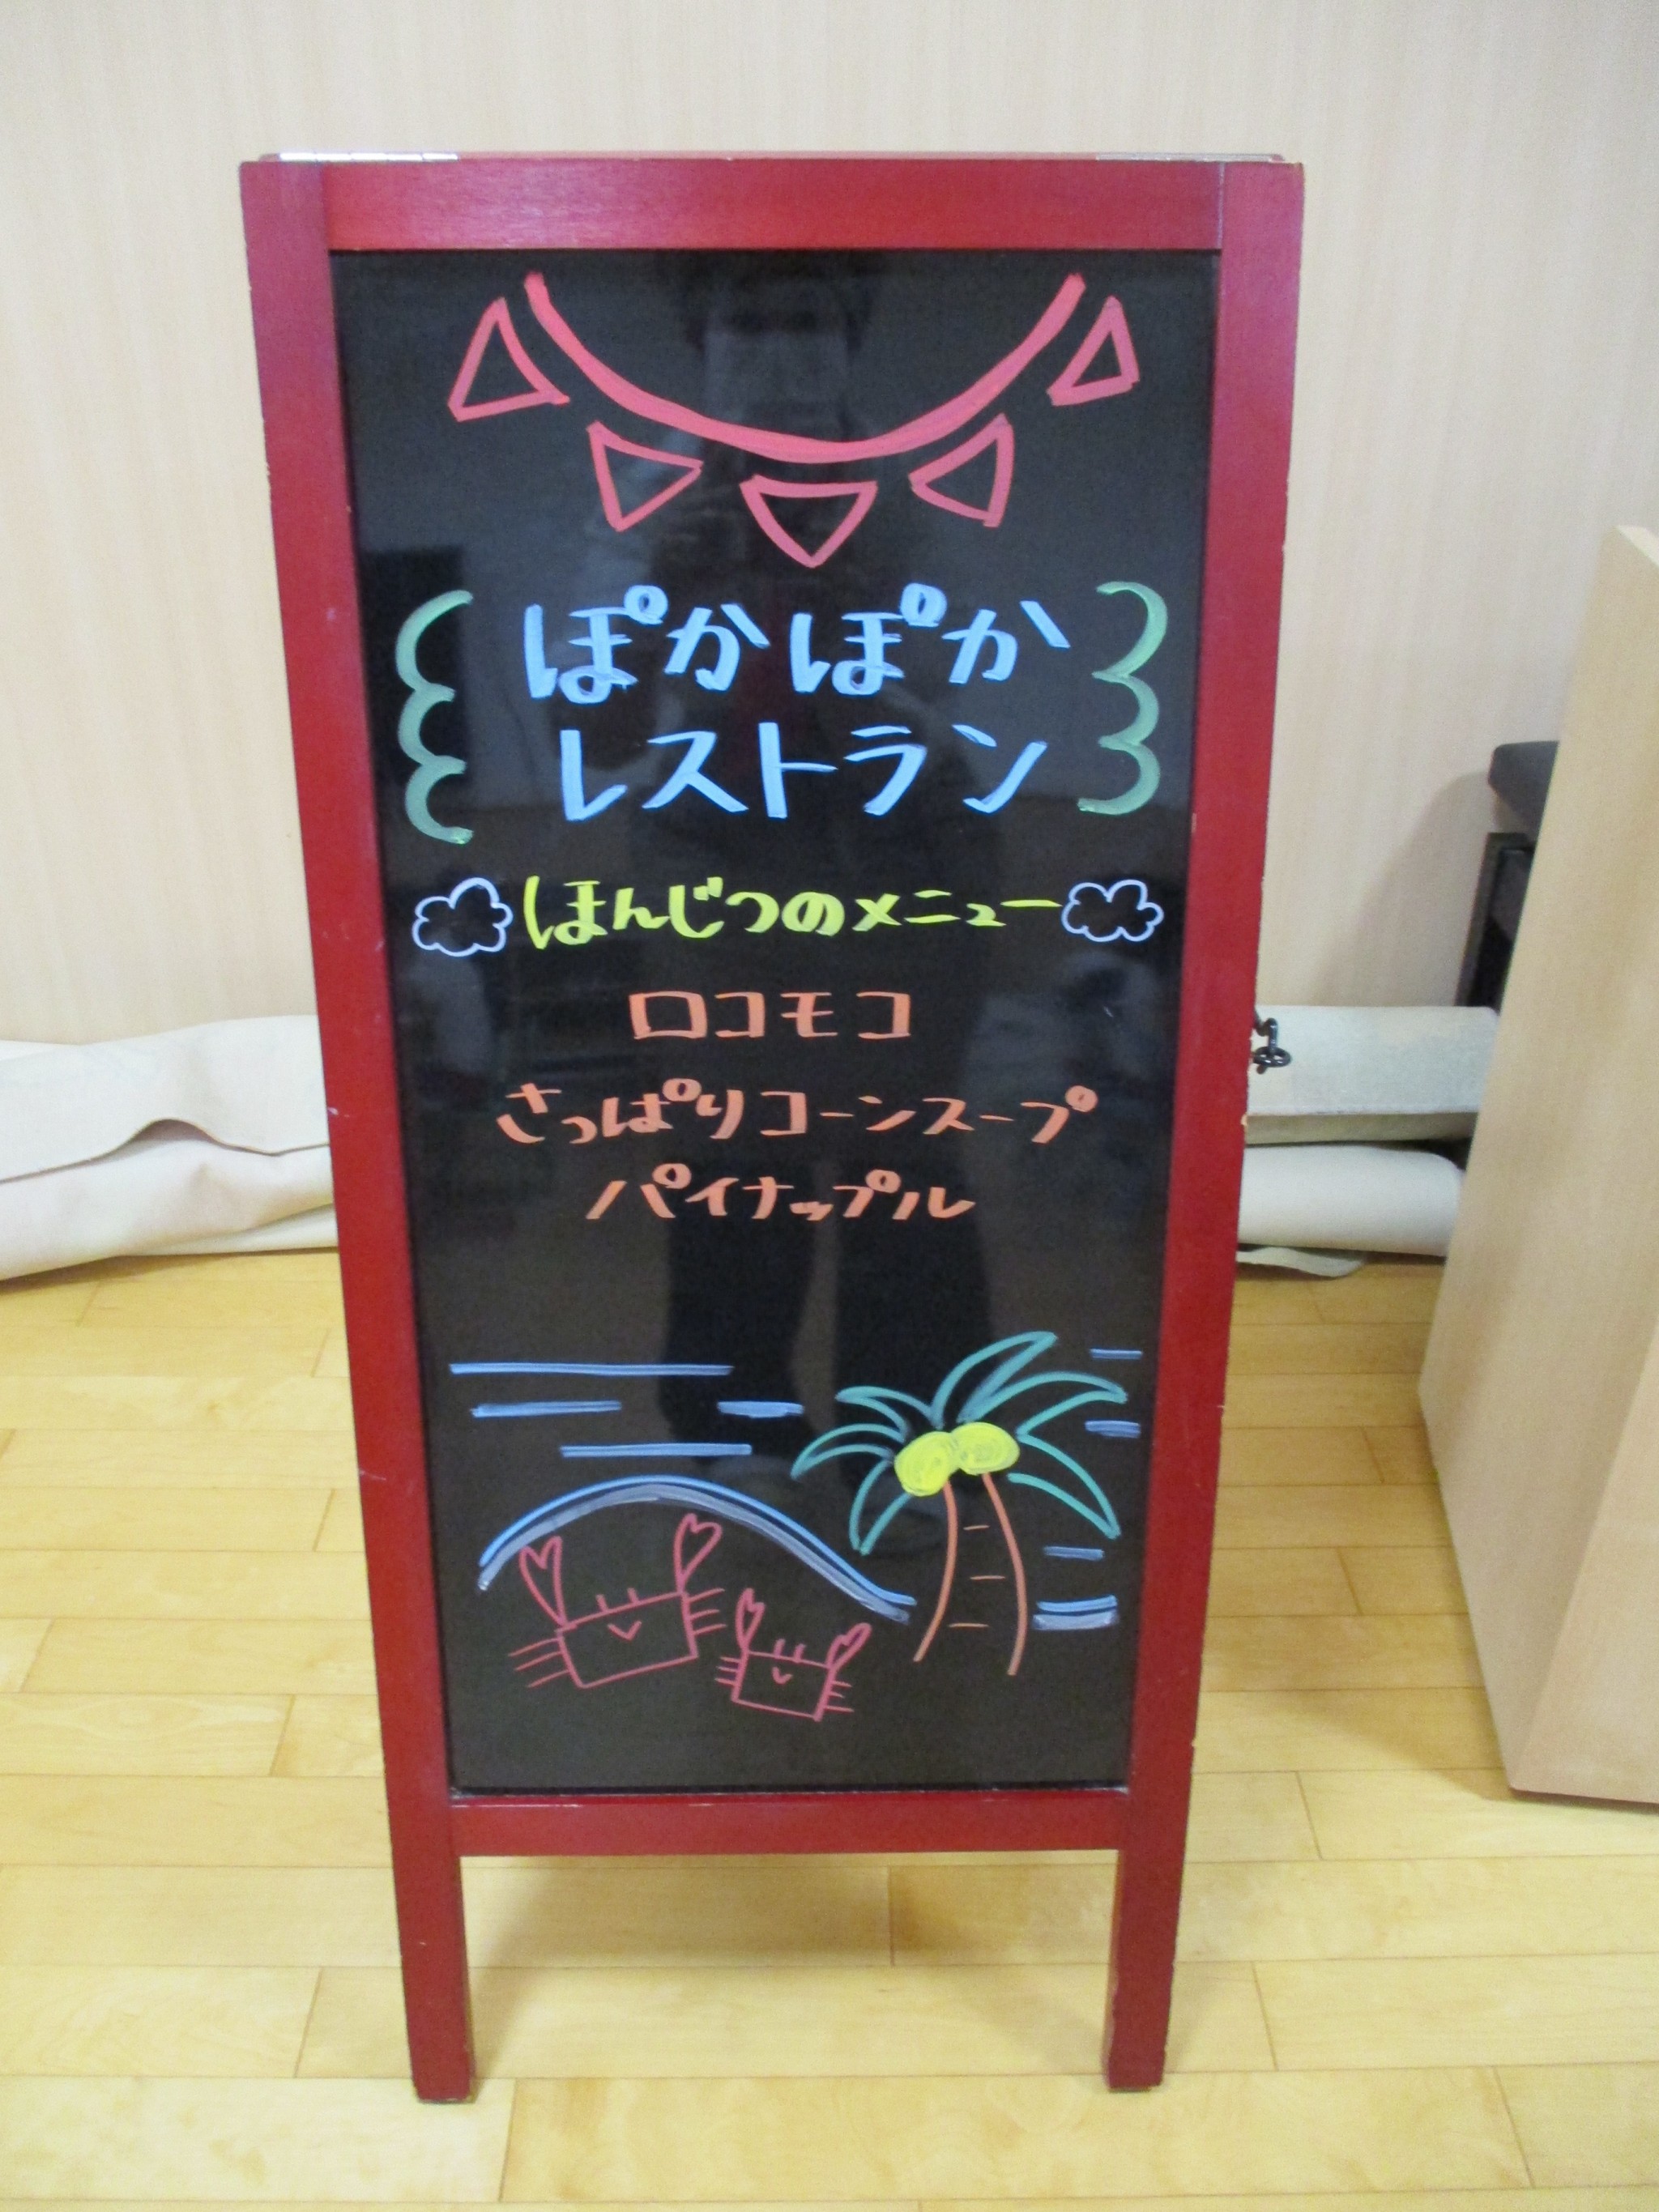 ぽかぽか
レストラン
ほんじつのメニュー
ロコモコ
さっぱりコーンスープ
パイナップル